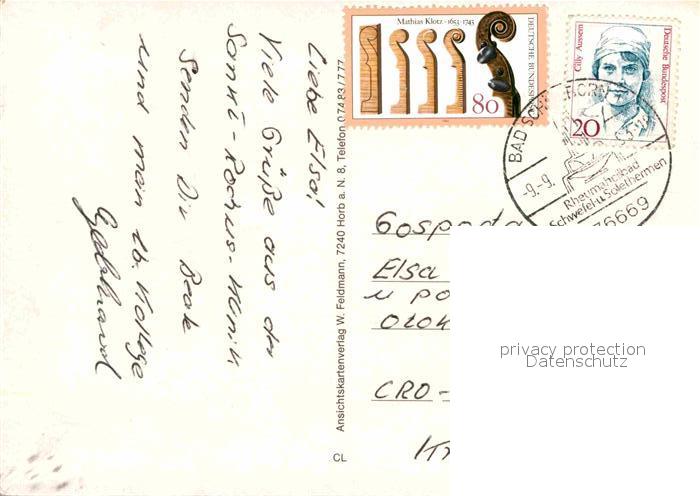 Liebe Elsa!
Viele Grüße aus der
Sankt-Rochus-Klinik
senden Dir Beate
und mein lb. Kollege
Ansichtskartenverlag W. Feldmann, 7240 Horb a. N. 8, Telefon 07483/777
CL
Mathias Klotz · 1653-1743
DEUTSCHE BUNDESPOST
80
Cilly Aussem
Deutsche Bundespost
20
BAD SCHÖNBORN
-9.-9.
Rheumaheilbad
Schwefel-u. Solethermen
76669
Gospođa
Elsa
CRO-
privacy protection
Datenschutz